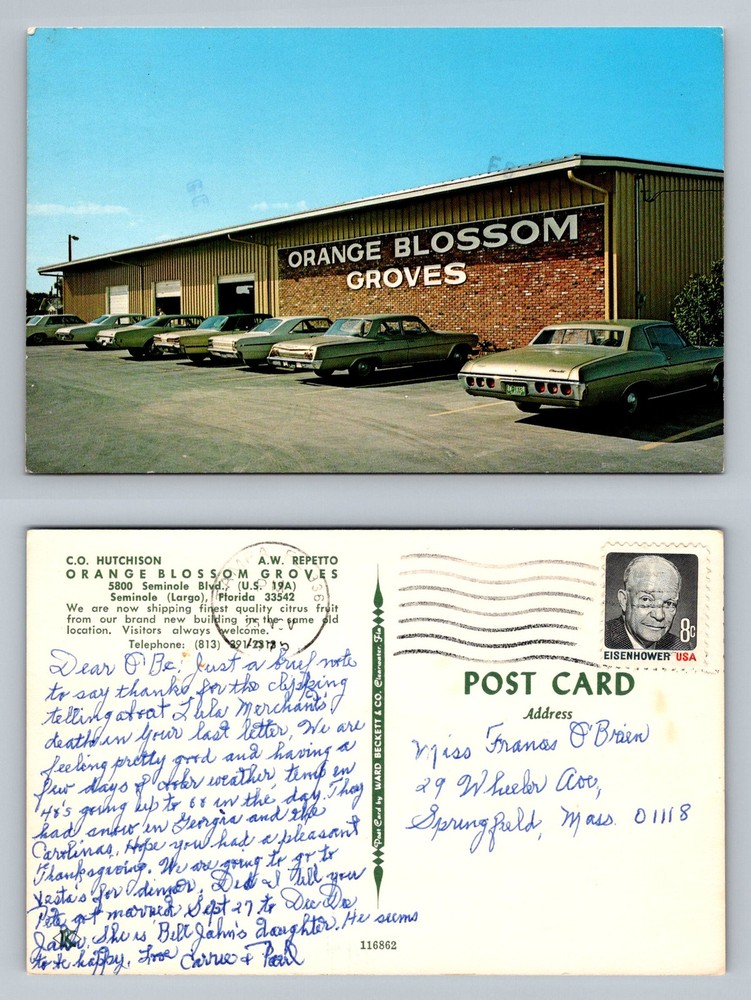 ORANGE BLOSSOM
GROVES
C.O. HUTCHISON A.W. REPETTO
ORANGE BLOSSOM GROVES
5800 Seminole Blvd., (U.S. 19A)
Seminole (Largo), Florida 33542
We are now shipping finest quality citrus fruit
from our brand new building in the same old
location. Visitors always welcome.
Telephone: (813) 391-2313
Dear O'Be; Just a brief note
to say thanks for the clipping
telling about Lula Merchant's
death in your last letter, We are
feeling pretty good and having a
few days of cooler weather temp in
40's going up to 60 in the day. They
had snow in Georgia and the
Carolinas. Hope you had a pleasant
Thanksgiving. We are going to go to
Vesta's for dinner. Did I tell you
Pete got married Sept 27 to Dee Dee
Jahn. She is Bill Jahn's daughter. He seems
to be happy. Love Carrie & Paul
Post Card by WARD BECKETT & CO. Clearwater, Fla.
8c
EISENHOWER USA
POST CARD
Address
Miss Frances O'Brien
29 Wheeler Ave,
Springfield, Mass. 01118
116862